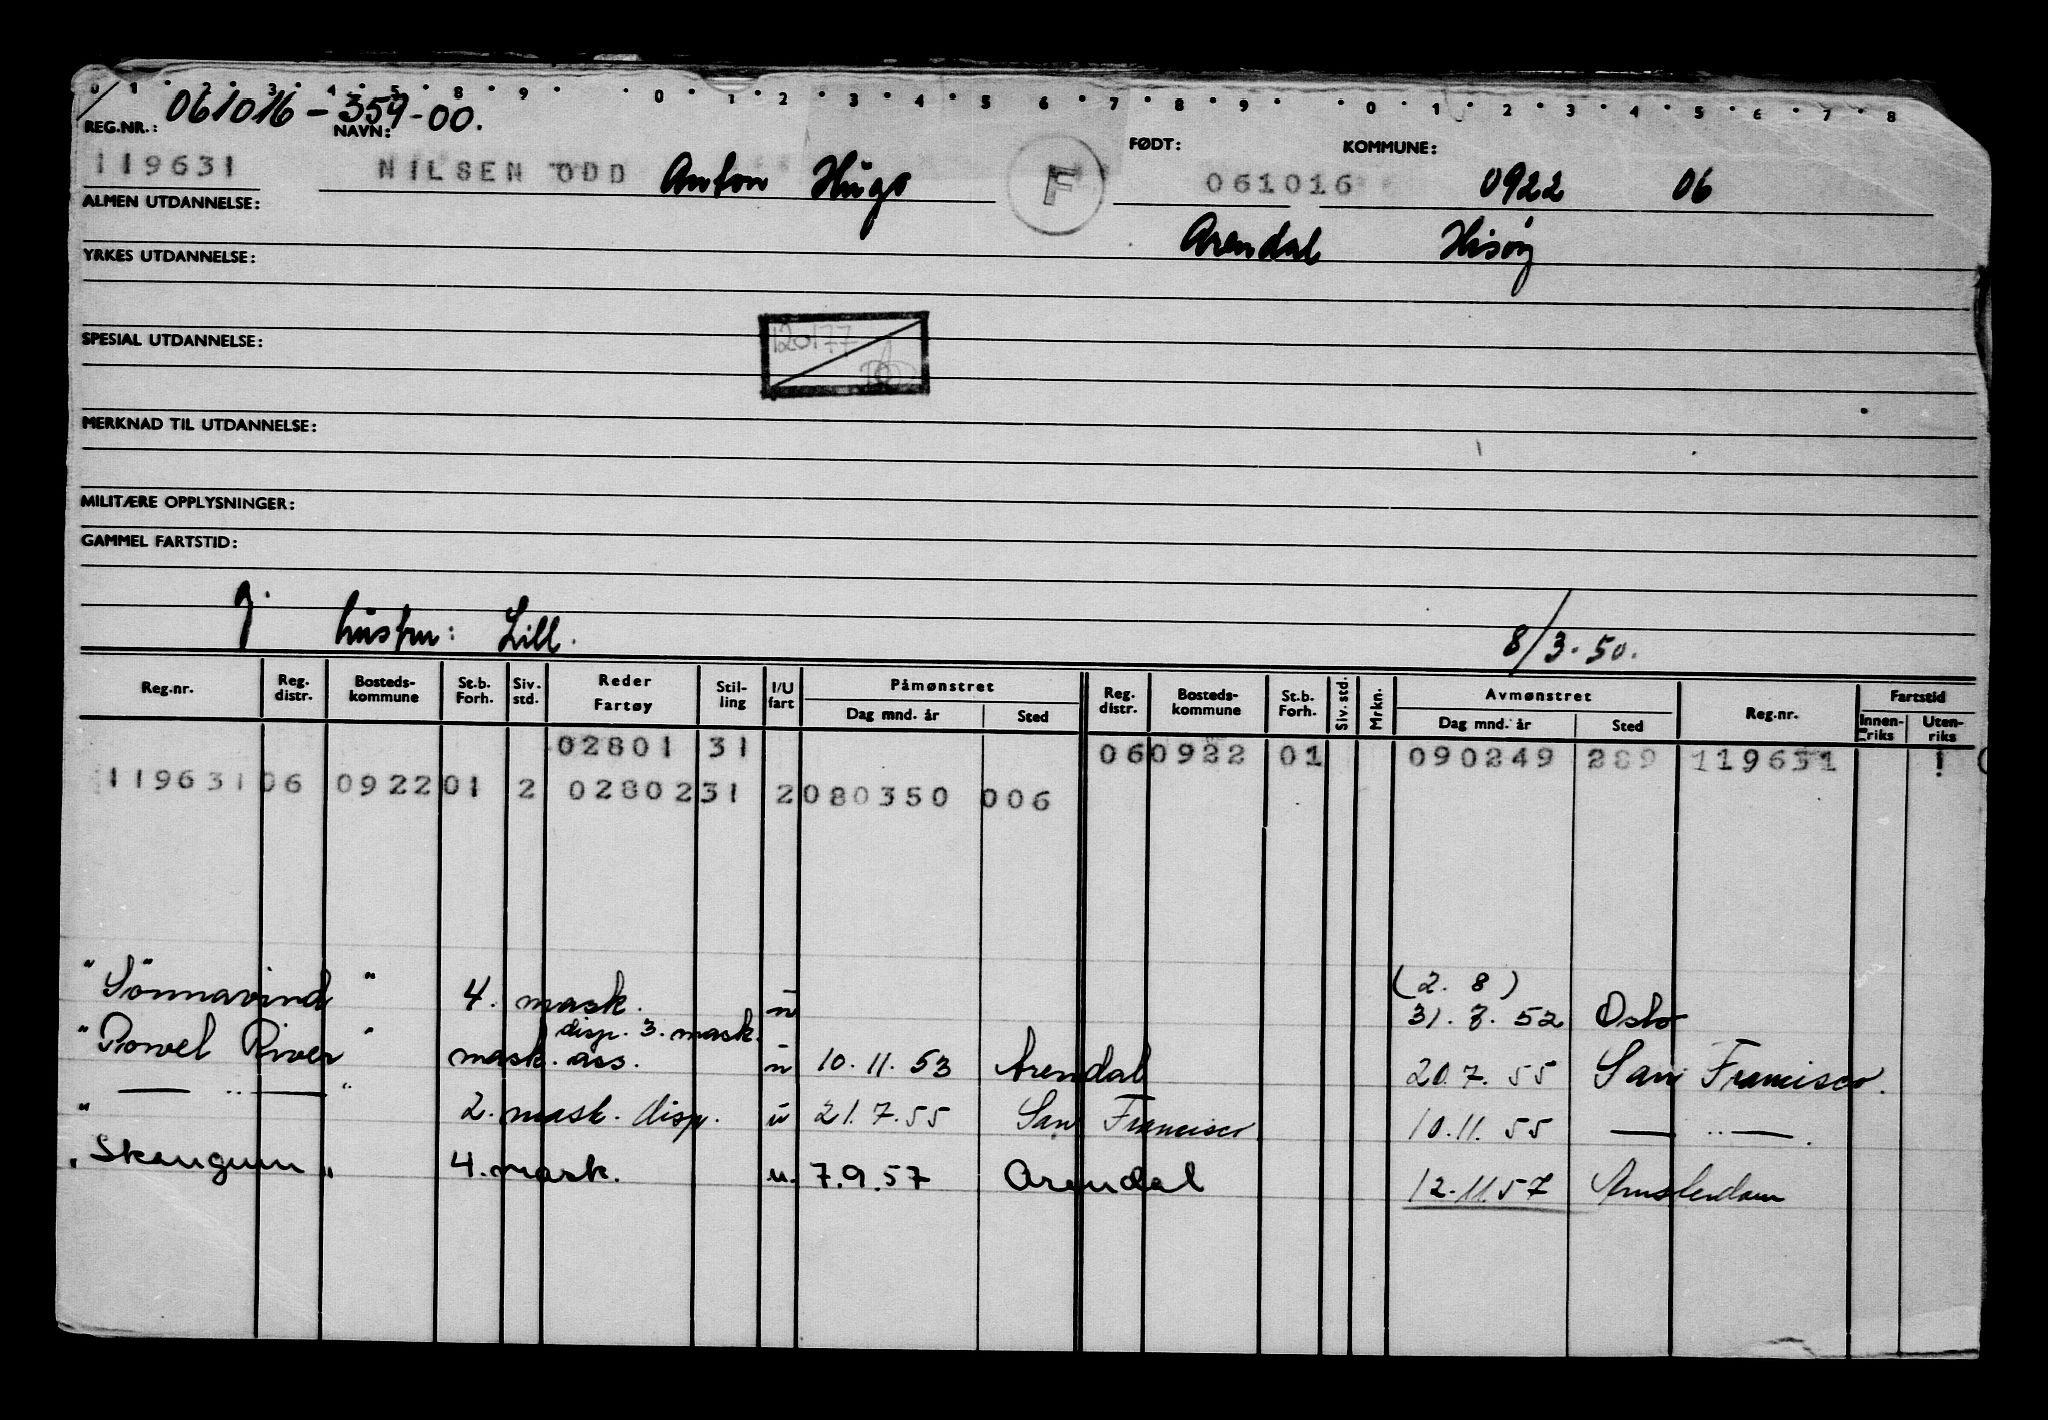 0 1 2 3 4 5 8 9 0 1 2 3 4 5 6 7 8 9 0 1 2 3 4 5 6 7 8
061016-359-00.
REG.NR.: NAVN: FØDT: KOMMUNE:
119631 NILSEN ODD Anton Hugo F 061016 0922 06
ALMEN UTDANNELSE: Arendal Hisøy
YRKES UTDANNELSE:
SPESIAL UTDANNELSE: 120177
MERKNAD TIL UTDANNELSE:
MILITÆRE OPPLYSNINGER:
GAMMEL FARTSTID:
g. hustru: Lill. 8/3.50.
Reg.nr. Reg. distr. Bosteds-kommune St.b. Forh. Siv. std. Reder Fartøy Stil-ling I/U fart Påmønstret Dag mnd. år Sted Reg. distr. Bosteds-kommune St.b. Forh. Siv. std. Mrkn. Avmønstret Dag mnd. år Sted Reg.nr. Fartstid Innen-riks Uten-riks
02801 31 06 0922 01 090249 289 119631
119631 06 0922 01 2 02802 31 2 080350 006
(2. 8)
"Sönnavind" 4. mask. u 31. 7. 52 Oslo
disp. 3. mask.
"Powel River" mask. ass. u 10.11.53 Arendal 20.7.55 San Francisco.
" — .. — " 2. mask. disp. u 21.7.55 San Francisco 10.11.55 — .. — .
"Skaugum" 4. mask. u. 7.9.57 Arendal 12.11.57 Amsterdam